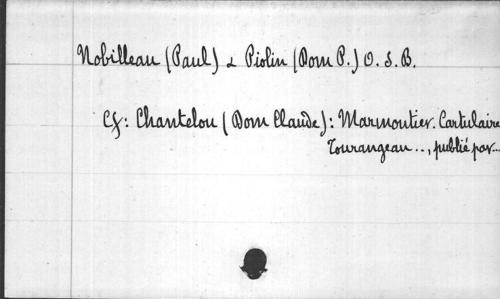 Nobilleau (Paul) & Piolin (Dom P.) O. S. B.
Cf: Chantelou (Dom Claude): Marmoutier. Cartulaire
Tourangeau .., publié par...